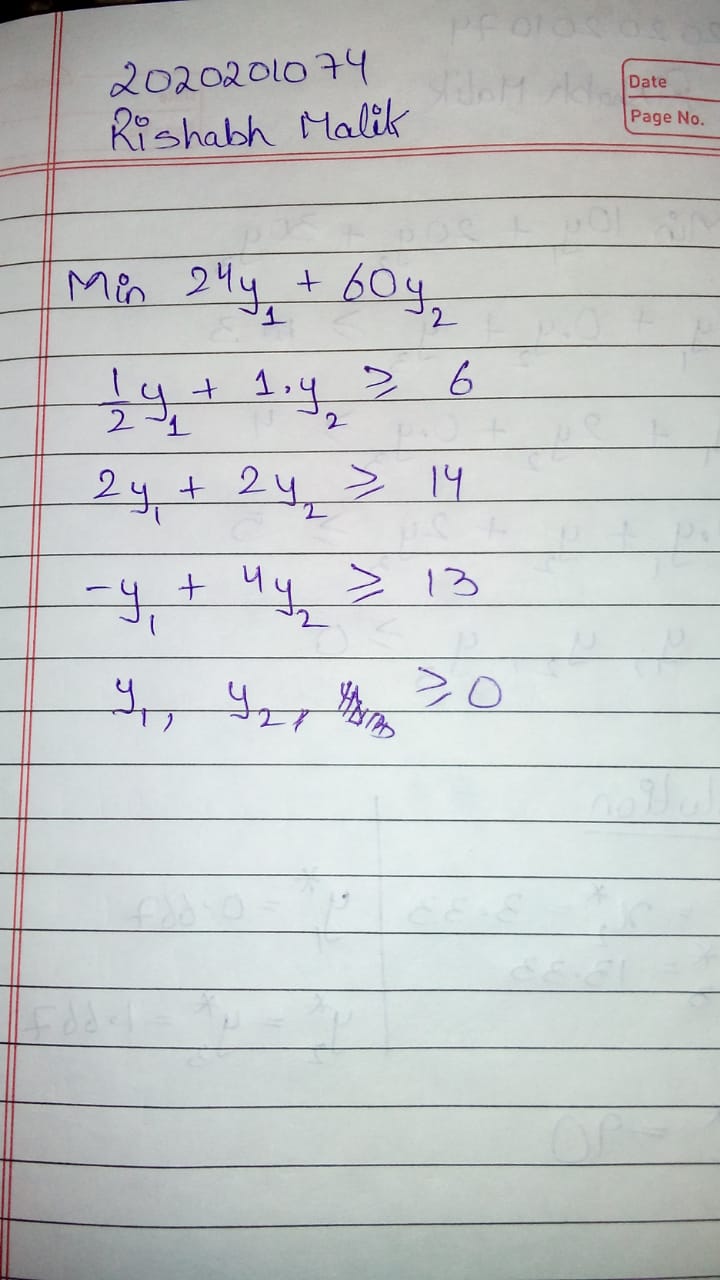 2020201074
Rishabh Malik
Date
Page No.
Min 24y₁ + 60y₂
1/2 y₁ + 1.y₂ ≥ 6
2y₁ + 2y₂ ≥ 14
-y₁ + 4y₂ ≥ 13
y₁, y₂, ≥ 0